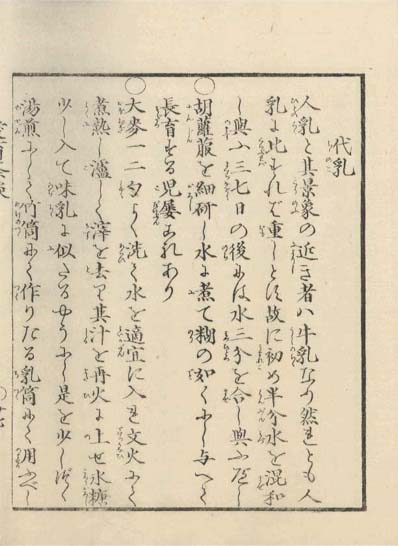 代乳
人乳と其景象の近き者ハ牛乳なり然れとも人
乳に比すれバ重しとす故に初め半分水を混和
し与ふ三七日の後よは水三分を合し与ふべし
〇胡蘿蔔を細研し水に煮て糊の如くふし与へて
長育する児屡これあり
〇大麥一二匁よく洗て水を適宜に入れ文火ふて
煮熟し濾して滓を去り其汁を再火に上せ氷糖
少し入て味乳に似たるやうふし是を少しづゝ
湯煎ふして竹筒ふて作りたる乳筒ふて用ふべし